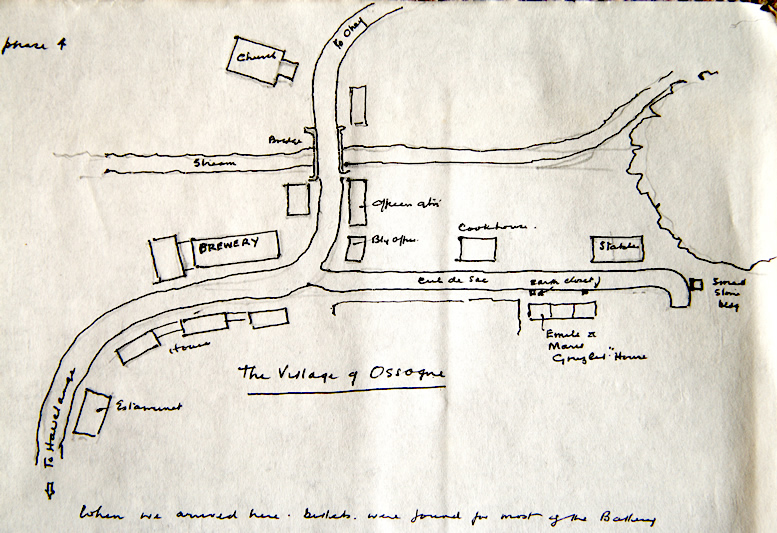 phase 4
To Ohay
Church
Bridge
Stream
Officers qtrs
Cookhouse.
BREWERY
Bty Office
Stables
Cul de Sac
Earth closets
Small
Store
bldg
Houses
Emile &
Marie
House
The Village of Ossogne
Estaminet
To Havelange
When we arrived here. billets. were found for most of the Battery